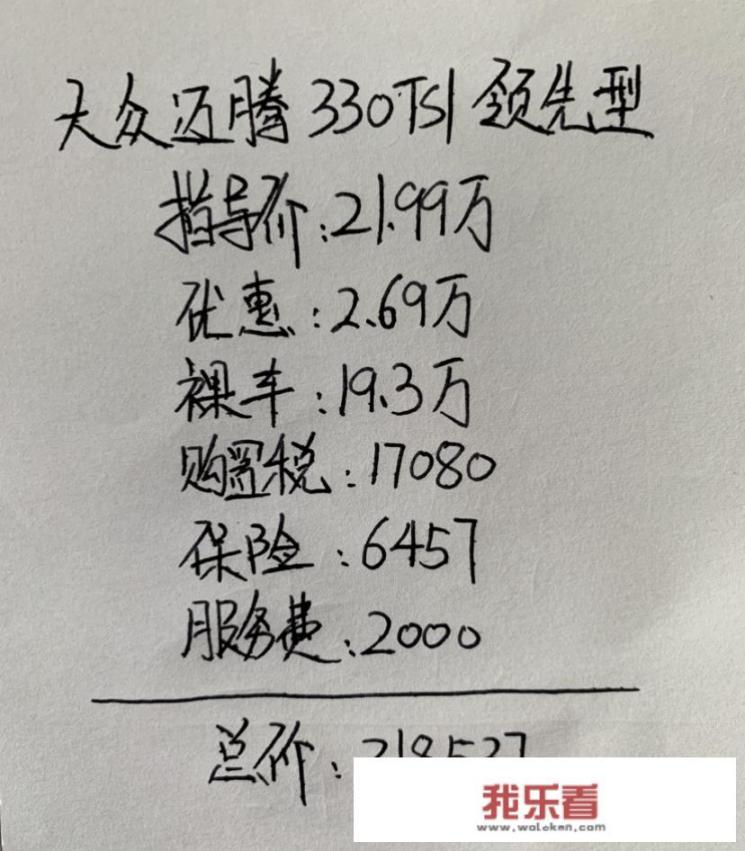 大众迈腾330TSI领先型
指导价:21.99万
优惠:2.69万
裸车:19.3万
购置税:17080
保险:6457
服务费:2000
总价:218537
我乐看
www.wolekan.com